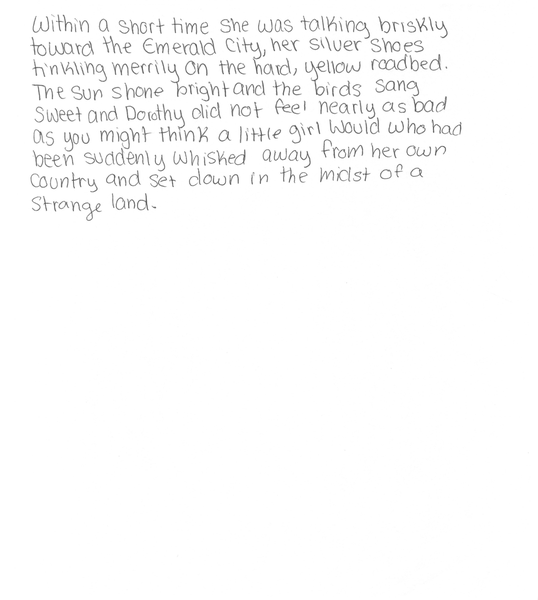 Within a short time she was talking briskly
toward the Emerald City, her Silver Shoes
tinkling merrily on the hard, yellow roadbed.
The sun shone bright and the birds sang
sweet and Dorothy did not feel nearly as bad
as you might think a little girl would who had
been suddenly whisked away from her own
country and set down in the midst of a
strange land.